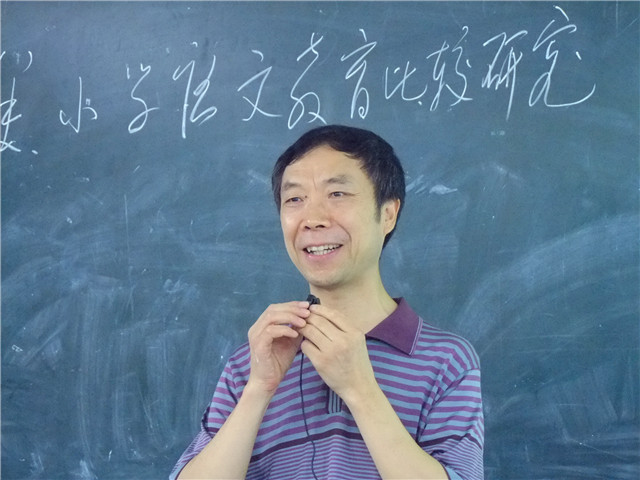 小学语文教育比较研究